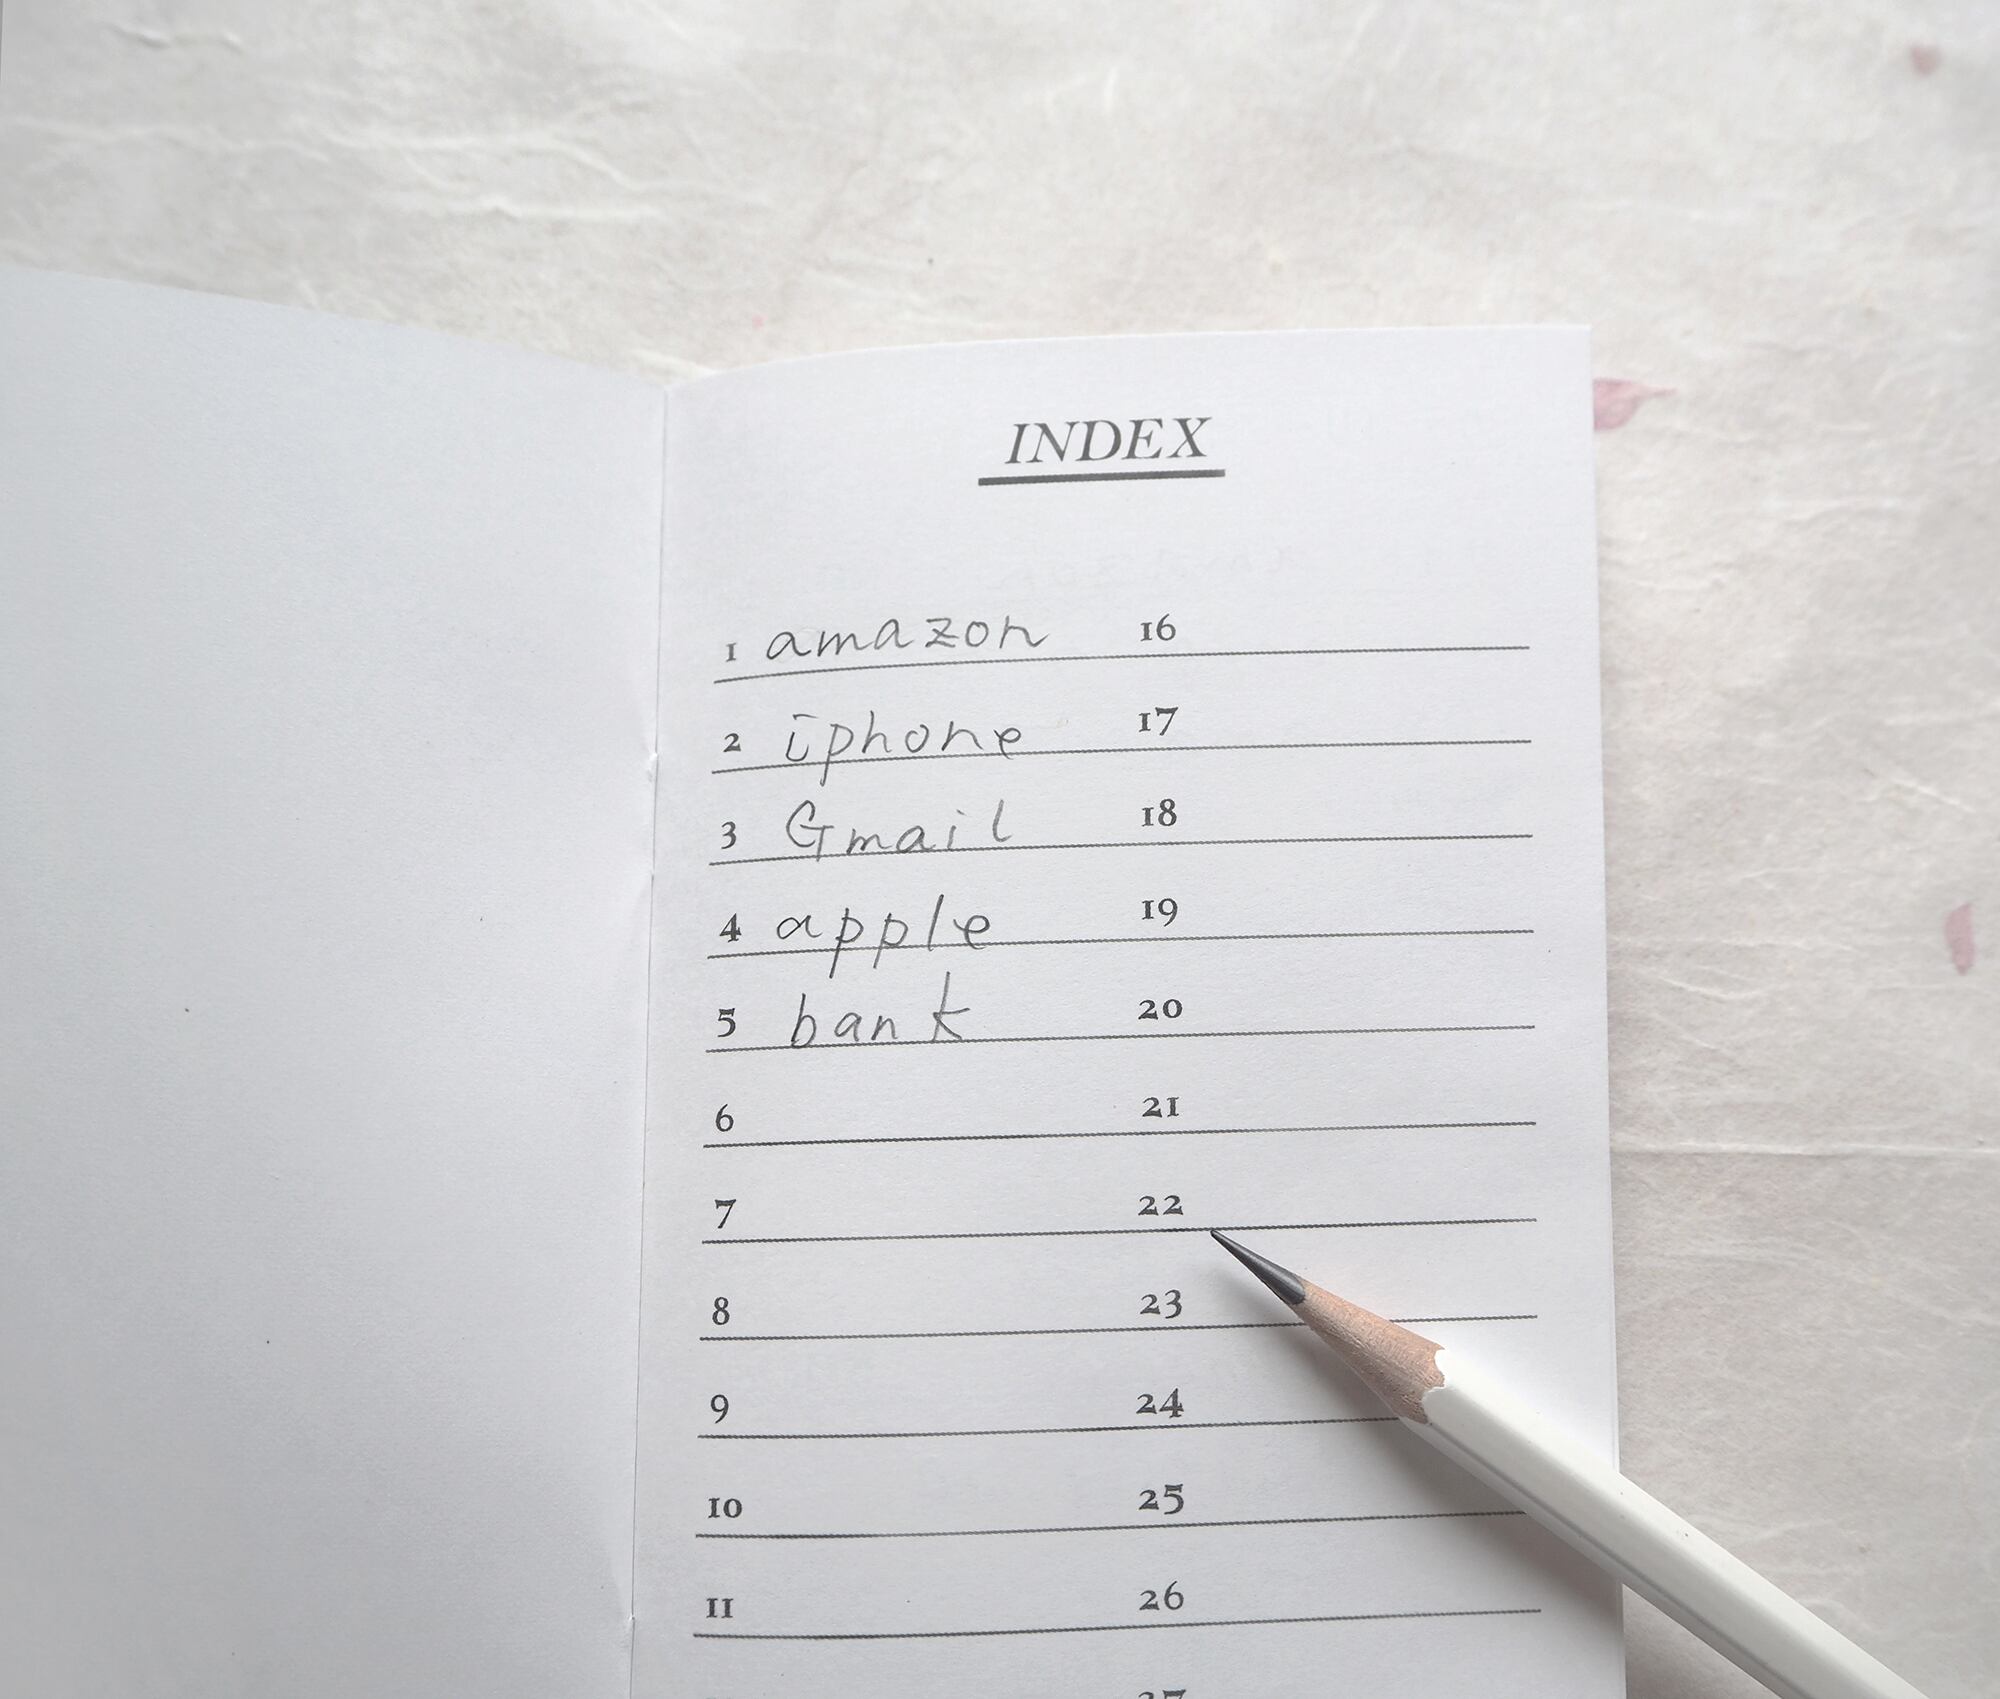 INDEX
1 amazon 16
2 iphone 17
3 Gmail 18
4 apple 19
5 bank 20
6 21
7 22
8 23
9 24
10 25
11 26
27